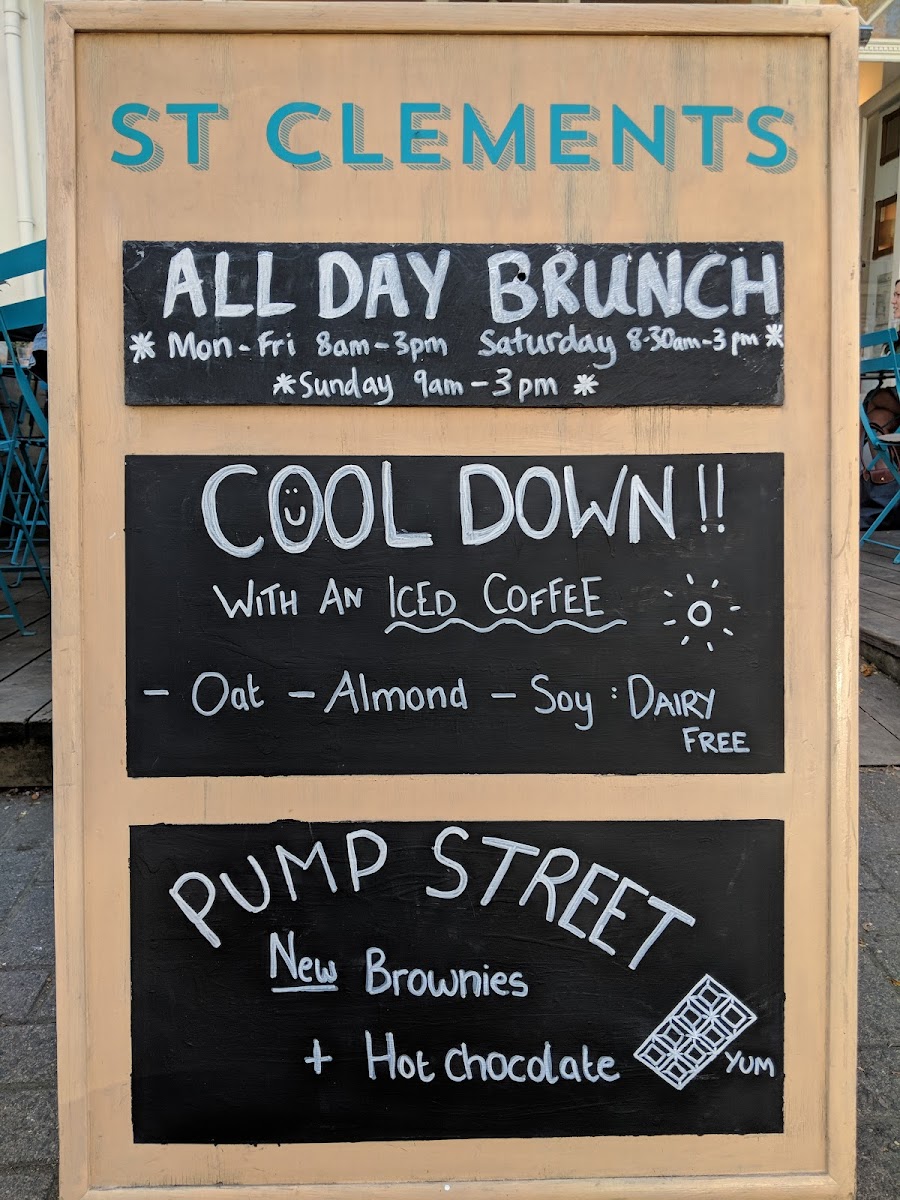 ST CLEMENTS
ALL DAY BRUNCH
* Mon-Fri 8am-3pm Saturday 8-30am-3pm *
* Sunday 9am-3pm *
COOL DOWN!!
WITH AN ICED COFFEE
- Oat - Almond - Soy : DAIRY
FREE
PUMP STREET
New Brownies
+ Hot chocolate
YUM